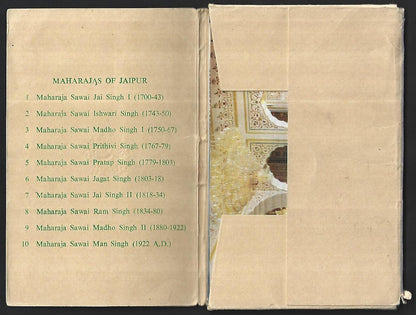 MAHARAJAS OF JAIPUR
1 Maharaja Sawai Jai Singh I (1700-43)
2 Maharaja Sawai Ishwari Singh (1743-50)
3 Maharaja Sawai Madho Singh I (1750-67)
4 Maharaja Sawai Prithivi Singh (1767-79)
5 Maharaja Sawai Pratap Singh (1779-1803)
6 Maharaja Sawai Jagat Singh (1803-18)
7 Maharaja Sawai Jai Singh II (1818-34)
8 Maharaja Sawai Ram Singh (1834-80)
9 Maharaja Sawai Madho Singh II (1880-1922)
10 Maharaja Sawai Man Singh (1922 A.D.)